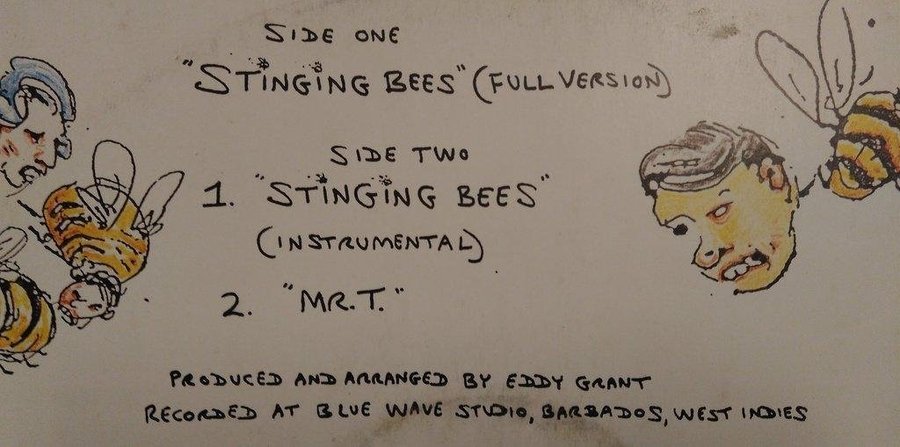 SIDE ONE
"STINGING BEES" (FULL VERSION)
SIDE TWO
1. "STINGING BEES"
(INSTRUMENTAL)
2. "MR.T."
PRODUCED AND ARRANGED BY EDDY GRANT
RECORDED AT BLUE WAVE STUDIO, BARBADOS, WEST INDIES